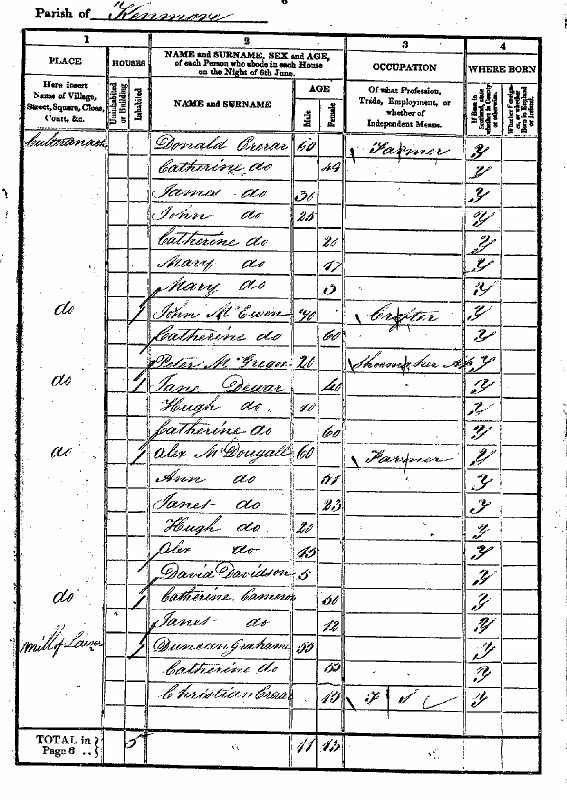 Parish of Kenmore
1 2 3 4
PLACE HOUSES NAME and SURNAME, SEX and AGE, of each Person who abode in each House on the Night of 6th June. OCCUPATION WHERE BORN
Here insert Name of Village, Street, Square, Close, Court, &c. Uninhabited or Building Inhabited NAME and SURNAME AGE Male Female Of what Profession, Trade, Employment, or whether of Independent Means. If Born in Scotland, state whether in County or otherwise. Whether Foreigner, or whether Born in England or Ireland.
Donald Crerar 60 Farmer y
Catherine do 49 y
James do 30 y
John do 25 y
Catherine do 20 y
Mary do 17 y
Mary do y
do 1 John McEwen 70 Crofter y
Catherine do 60 y
Peter McGregor 20 Shoemaker Ap y
do 1 Jane Dewar 40 y
Hugh do. 10 y
Catherine do 60 y
do 1 Alex McDougall 60 Farmer y
Ann do y
Janet do 23 y
Hugh do 20 y
Alex do 15 y
David Davidson 5 y
do 1 Catherine Cameron 50 y
Janet do 12 y
Mill of 1 Duncan Graham y
Catherine do y
Christian Crerar 15 F S y
TOTAL in Page 6 .. 5 11 13